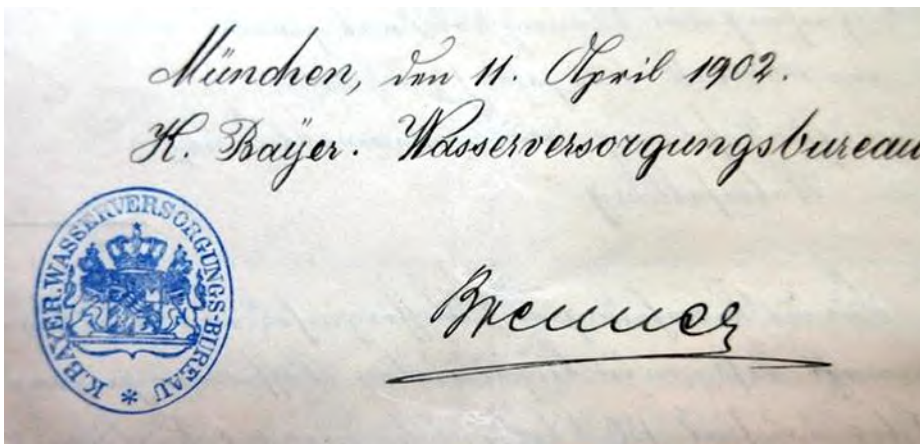 München, den 11. April 1902.
K. Bayer. Wasserversorgungsbureau
K. BAYER. WASSERVERSORGUNGS-BUREAU *
Brenner